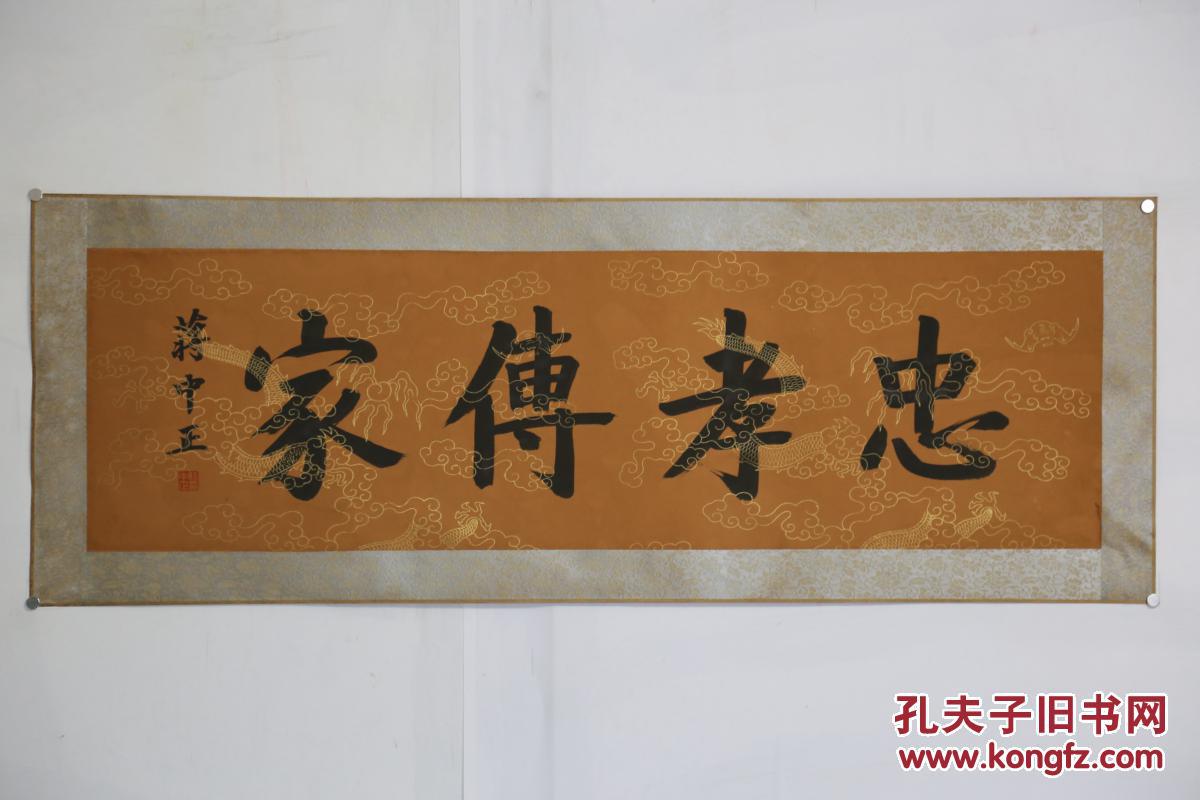 忠孝傳家
蔣中正
孔夫子旧书网
www.kongfz.com